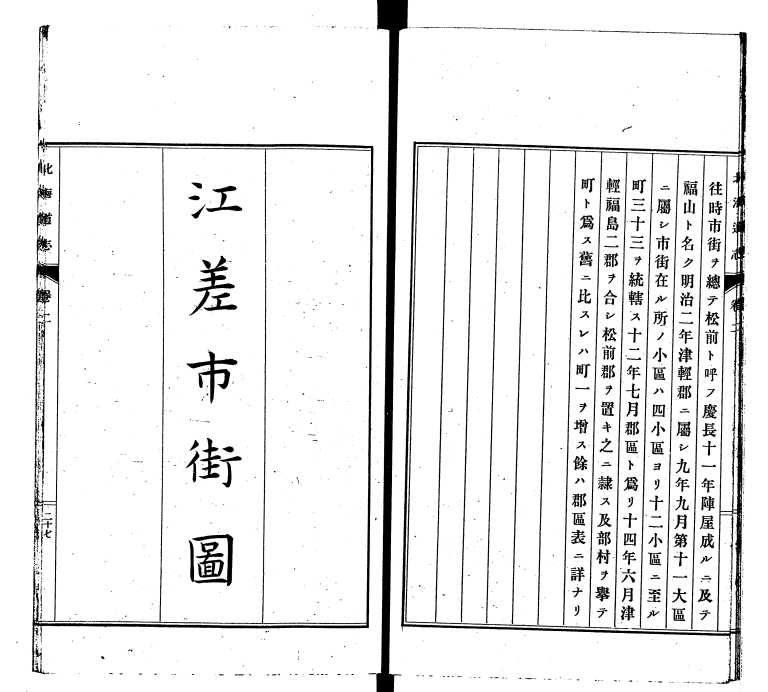 北海道志 卷二
往時市街ヲ總テ松前ト呼フ慶長十一年陣屋成ルニ及テ
福山ト名ク明治二年津輕郡ニ屬シ九年九月第十一大區
ニ屬シ市街在ル所ノ小區ハ四小區ヨリ十二小區ニ至ル
町三十三ヲ統轄ス十二年七月郡區ト爲リ十四年六月津
輕福島二郡ヲ合シ松前郡ヲ置キ之ニ隸ス及部村ヲ擧テ
町ト爲ス舊ニ比スレハ町一ヲ增ス餘ハ郡區表ニ詳ナリ
江差市街圖
北海道志 卷二 二十七